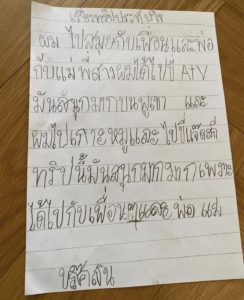 เรื่องทริปประทับใจ
ผม ไปสมุยกับเพื่อนและพ่อ
กับแม่ พี่สาวผมได้ไปขี่ ATV
มันสนุกมากบนภูเขา และ
ผมไปเกาะหมูและ ไปขี่เจ็ตสกี
ทริปนี้มันสนุกมากมากเพราะ
ได้ไปกับเพื่อนๆและ พ่อ แม่